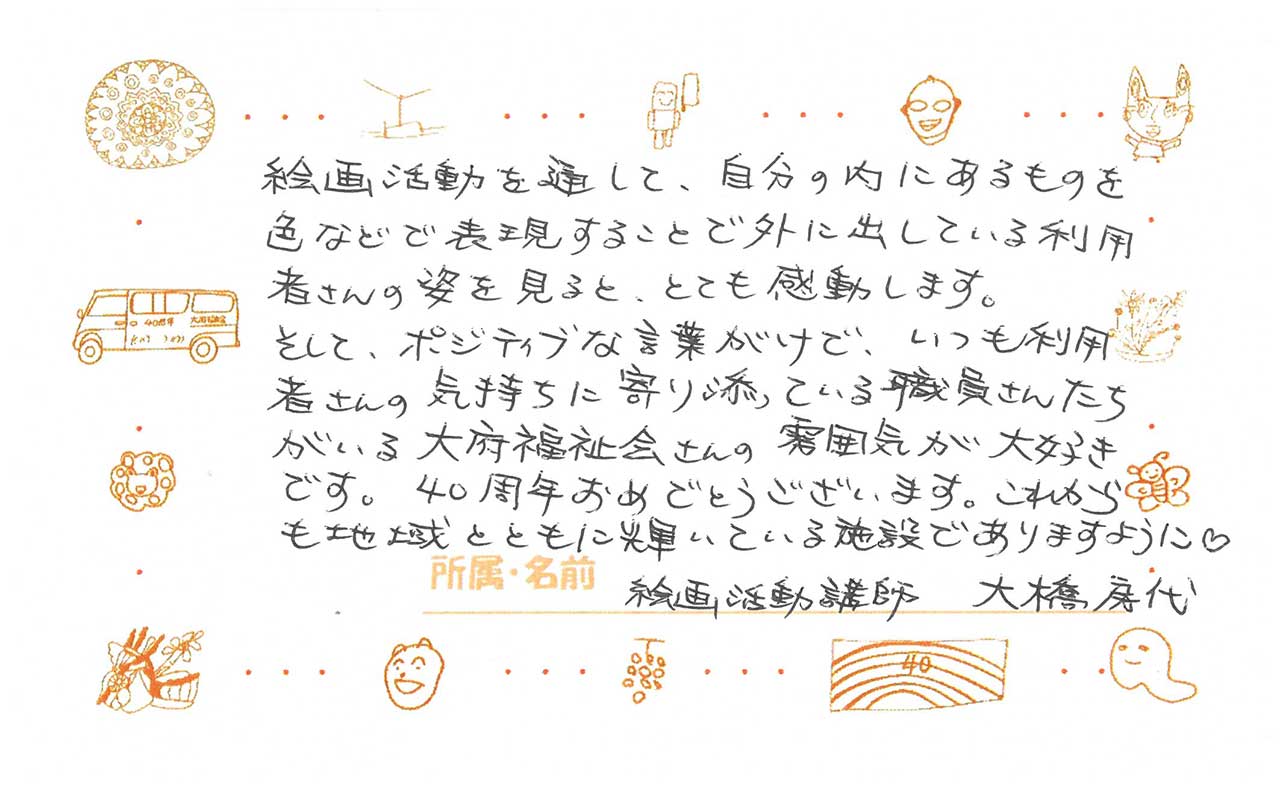 絵画活動を通して、自分の内にあるものを
色などで表現することで外に出している利用
者さんの姿を見ると、とても感動します。
そして、ポジティブな言葉がけで、いつも利用
者さんの気持ちに寄り添っている職員さんたち
がいる大府福祉会さんの雰囲気が大好き
です。40周年おめでとうございます。これから
も地域とともに輝いている施設でありますように♡
所属・名前
絵画活動講師 大橋房代
40周年 大府福祉会
40